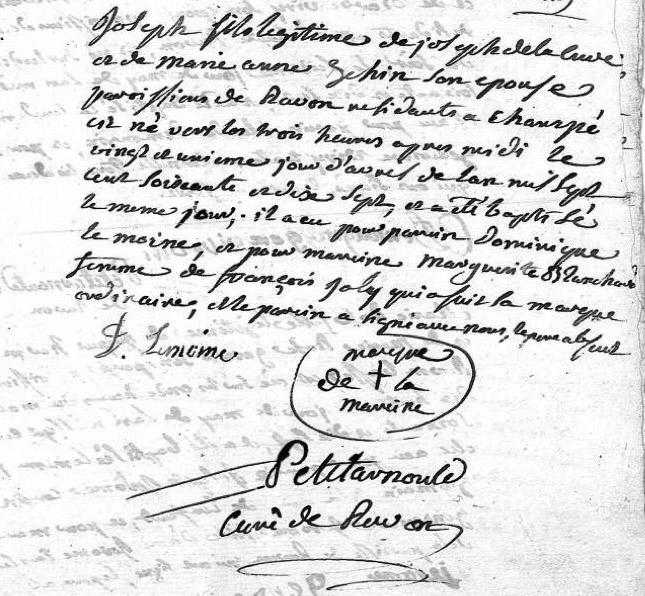 Joseph fils legitime de joseph delacuve
et de marie anne Gehin son epouse
paroissiens de Ravon residants a Charpé
est né vers les trois heures apres midi le
vingt et unieme jour d'avril de l'an mil sept
cent soixante et dix sept, et a été baptisé
le meme jour; il a eu pour parein Dominique
le moine, et pour mareine marguerite Blanchard
femme de françois Joly qui a fait la marque
ordinaire, et le parein a signé avec nous, le pere absent
D. Lemoine
marque
de + la
mareine
Petitarnould
Curé de Ravon